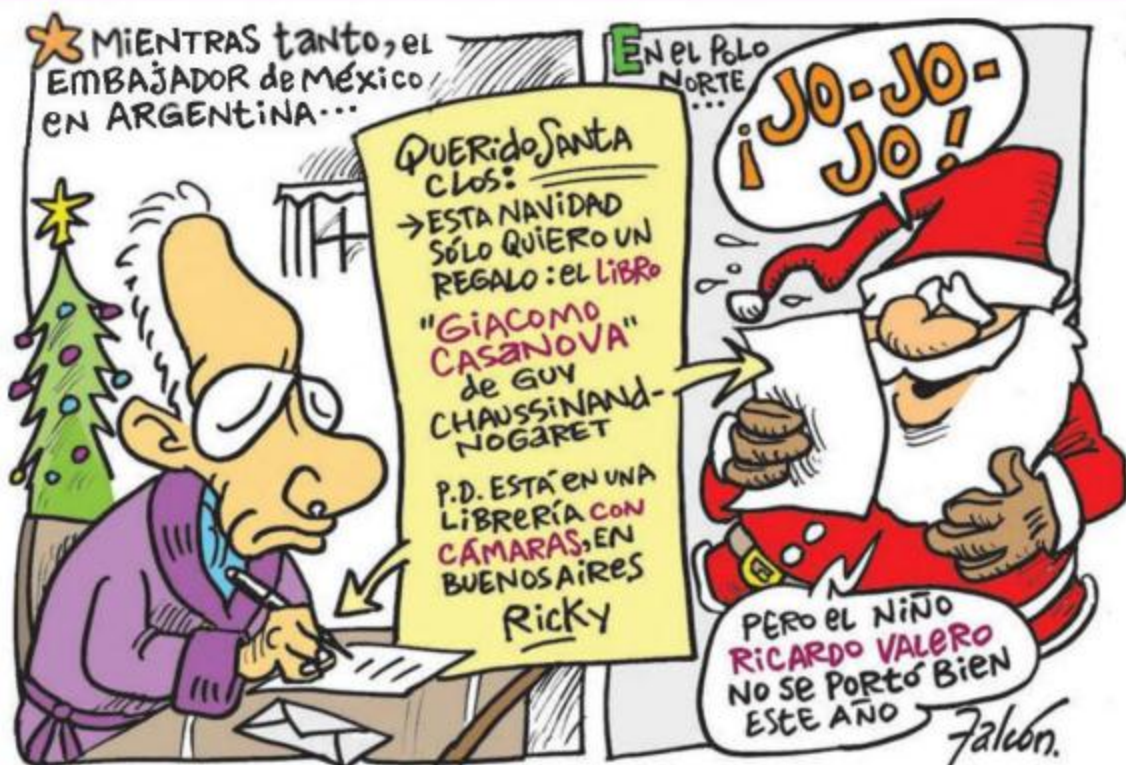 MIENTRAS tanto, el
EMBAJADOR de México
en ARGENTINA...
QUERido SANtA
CLOS:
→ ESTA NAVIDAD
SÓLO QUIERO UN
REGALO: el LIBRO
"GIACOMO
CASANOVA"
de GUY
CHAUSSINANd-
NOGARET
P.D. ESTÁ EN UNA
LIBRERÍA CON
CÁMARAS, EN
BUENOS AIRES
Ricky
EN el POLO
NORTE
...
¡JO-JO-
JO!
PERO el NIÑO
RICARDO VALERO
NO SE PORTÓ BIEN
ESTE AÑO
Falcón.